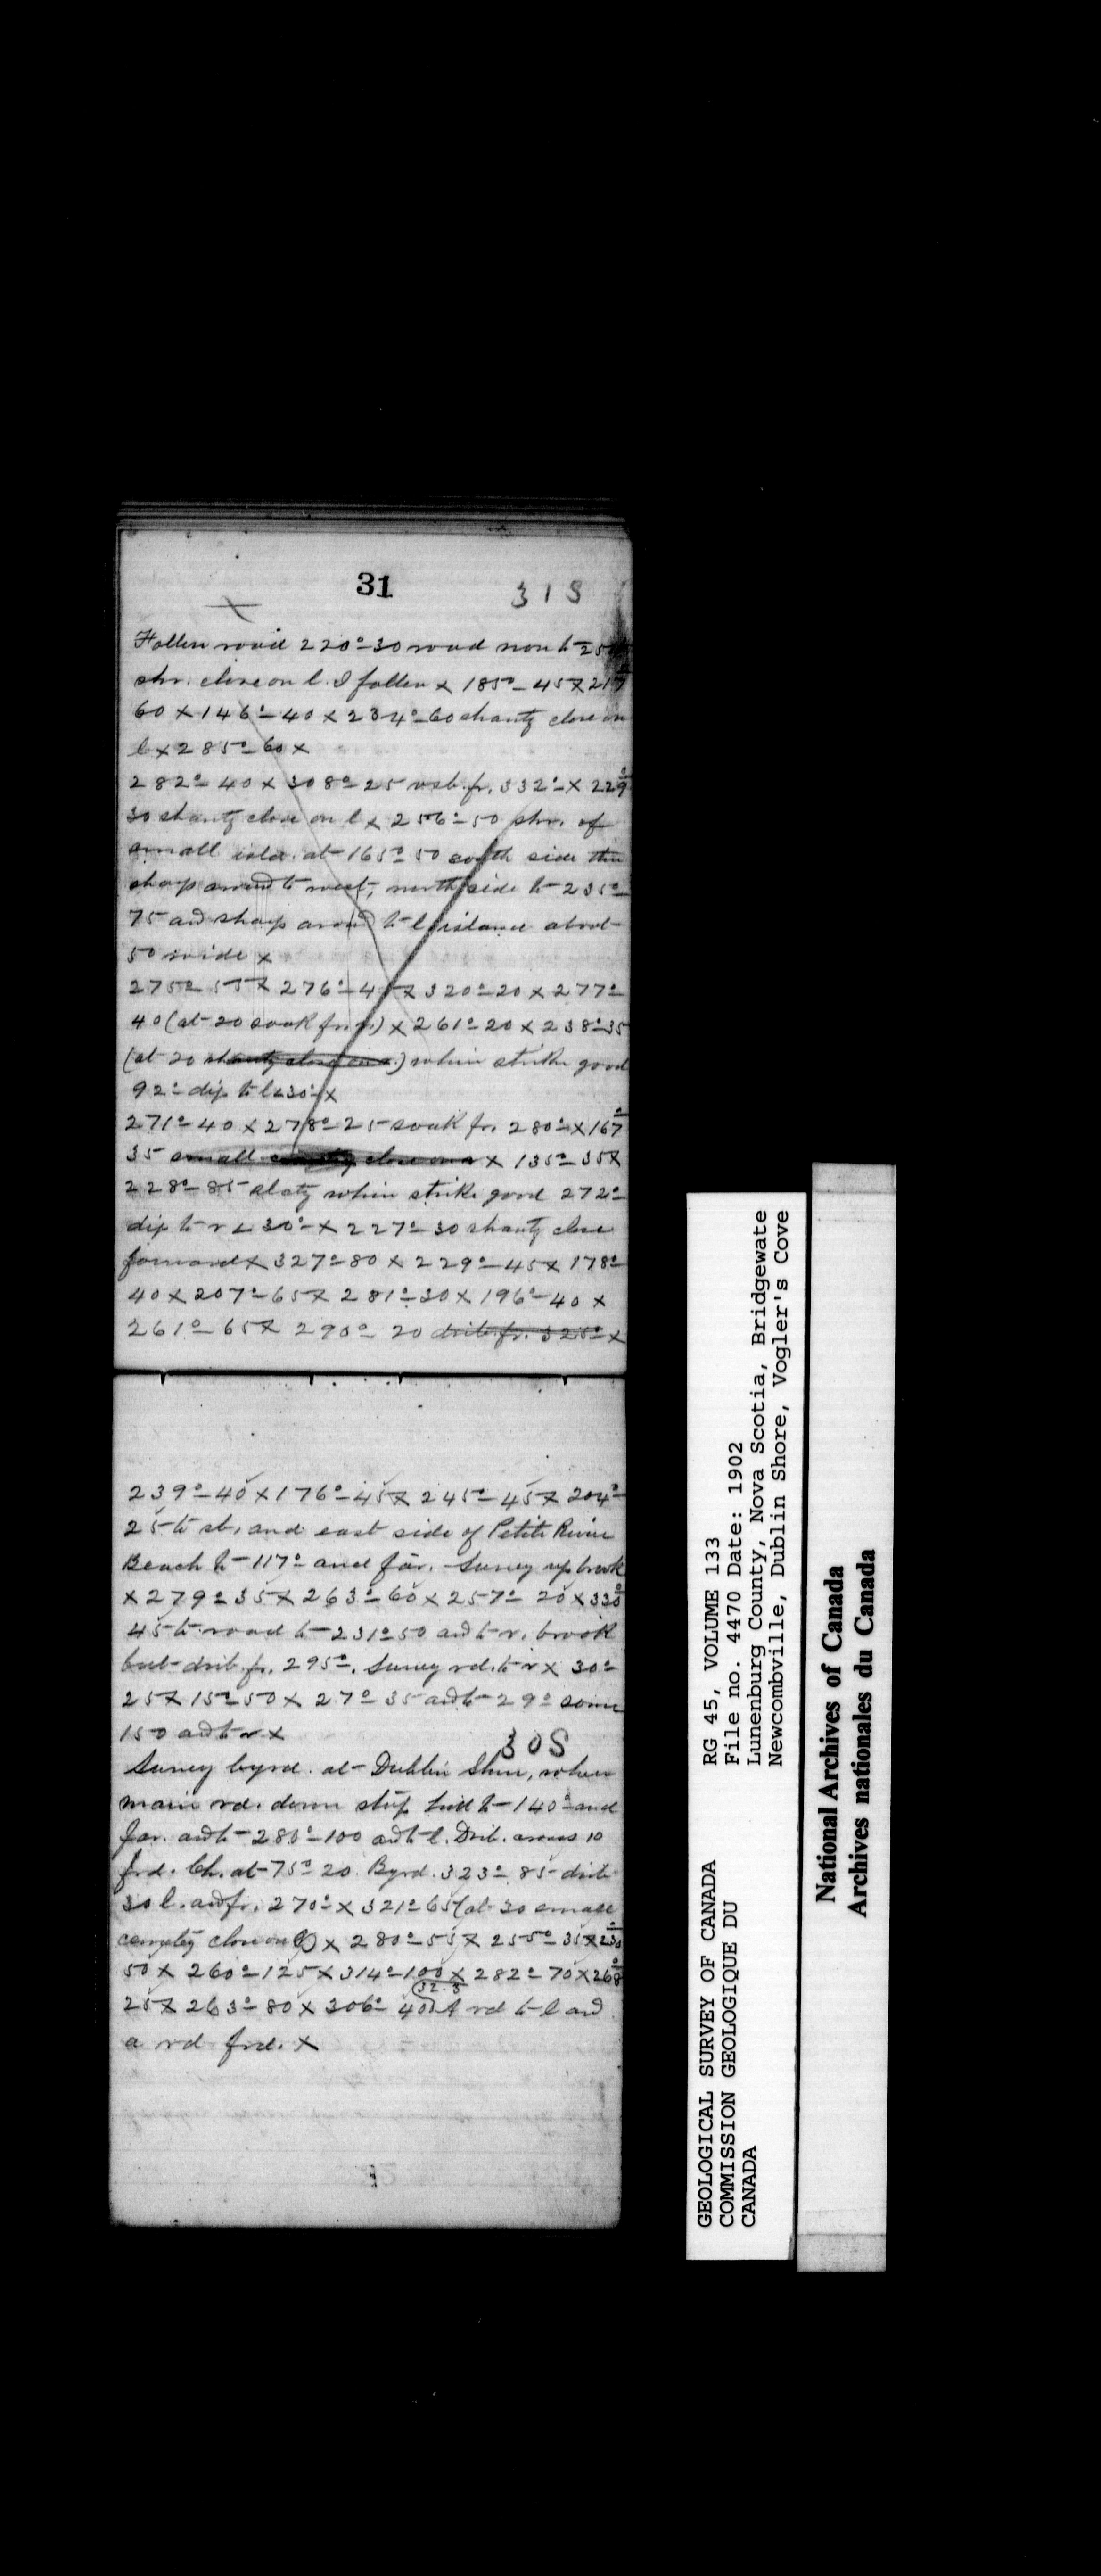 31
31 S
Follow road 220°-30 road now to 250
shr. close on l. I follow x 185°-45 x 217°
60 x 146°-40 x 234°-60 shanty close on
l x 285°-60 x
282°-40 x 308°-25 fr. 332° x 229°
30 shanty close on l x 256°-50 shr. of
small isld. at 165° 50 south side then
sharp around to west, north side to 235°
75 and sharp around to l island about
50 wide x
275° 55 x 276°-45 x 320°-20 x 277°
40 (at 20 soak fr. r.) x 261°-20 x 238°-35
(at 20 shanty close on r.) when strike good
92° dip to l < 30° x
271°-40 x 278°-25 soak fr. 280° x 167°
35 small close on r x 135°-35 x
228°-85 slaty when strike good 272°
dip to r < 30° x 227°-30 shanty close
forward x 327°-80 x 229°-45 x 178°
40 x 207°-65 x 281°-30 x 196°-40 x
261°-65 x 290°-20 drib. fr. 325° x
239°-40 x 176°-45 x 245°-45 x 204°
25 to st. and east side of Petite River
Beach to 117° and far. Survey up brook
x 279°-35 x 263°-60 x 257°-20 x 330°
45 to road to 231°-50 and to r. brook
but drib. fr. 295°. Survey rd. to r x 30°
25 x 15°-50 x 27°-35 and to 29° some
150 and to r x
30 S
Survey byrd. at Dublin Shore, where
main rd. down steep hill to 140° and
far. and to 280°-100 and to l. Drib. across 10
frd. Ch. at 75° 20. Byrd. 323°-85 drib
30 l. and fr. 270° x 321°-65 (at 30 small
cemetey close on l) x 280°-55 x 255°-35 x 230°
50 x 260°-125 x 314°-100 x 282°-70 x 268°
32.5
25 x 263°-80 x 306°-40 A rd to l and
a rd frd. x
GEOLOGICAL SURVEY OF CANADA RG 45, VOLUME 133
COMMISSION GEOLOGIQUE DU File no. 4470 Date: 1902
CANADA Lunenburg County, Nova Scotia, Bridgewate
Newcombville, Dublin Shore, Vogler's Cove
National Archives of Canada
Archives nationales du Canada